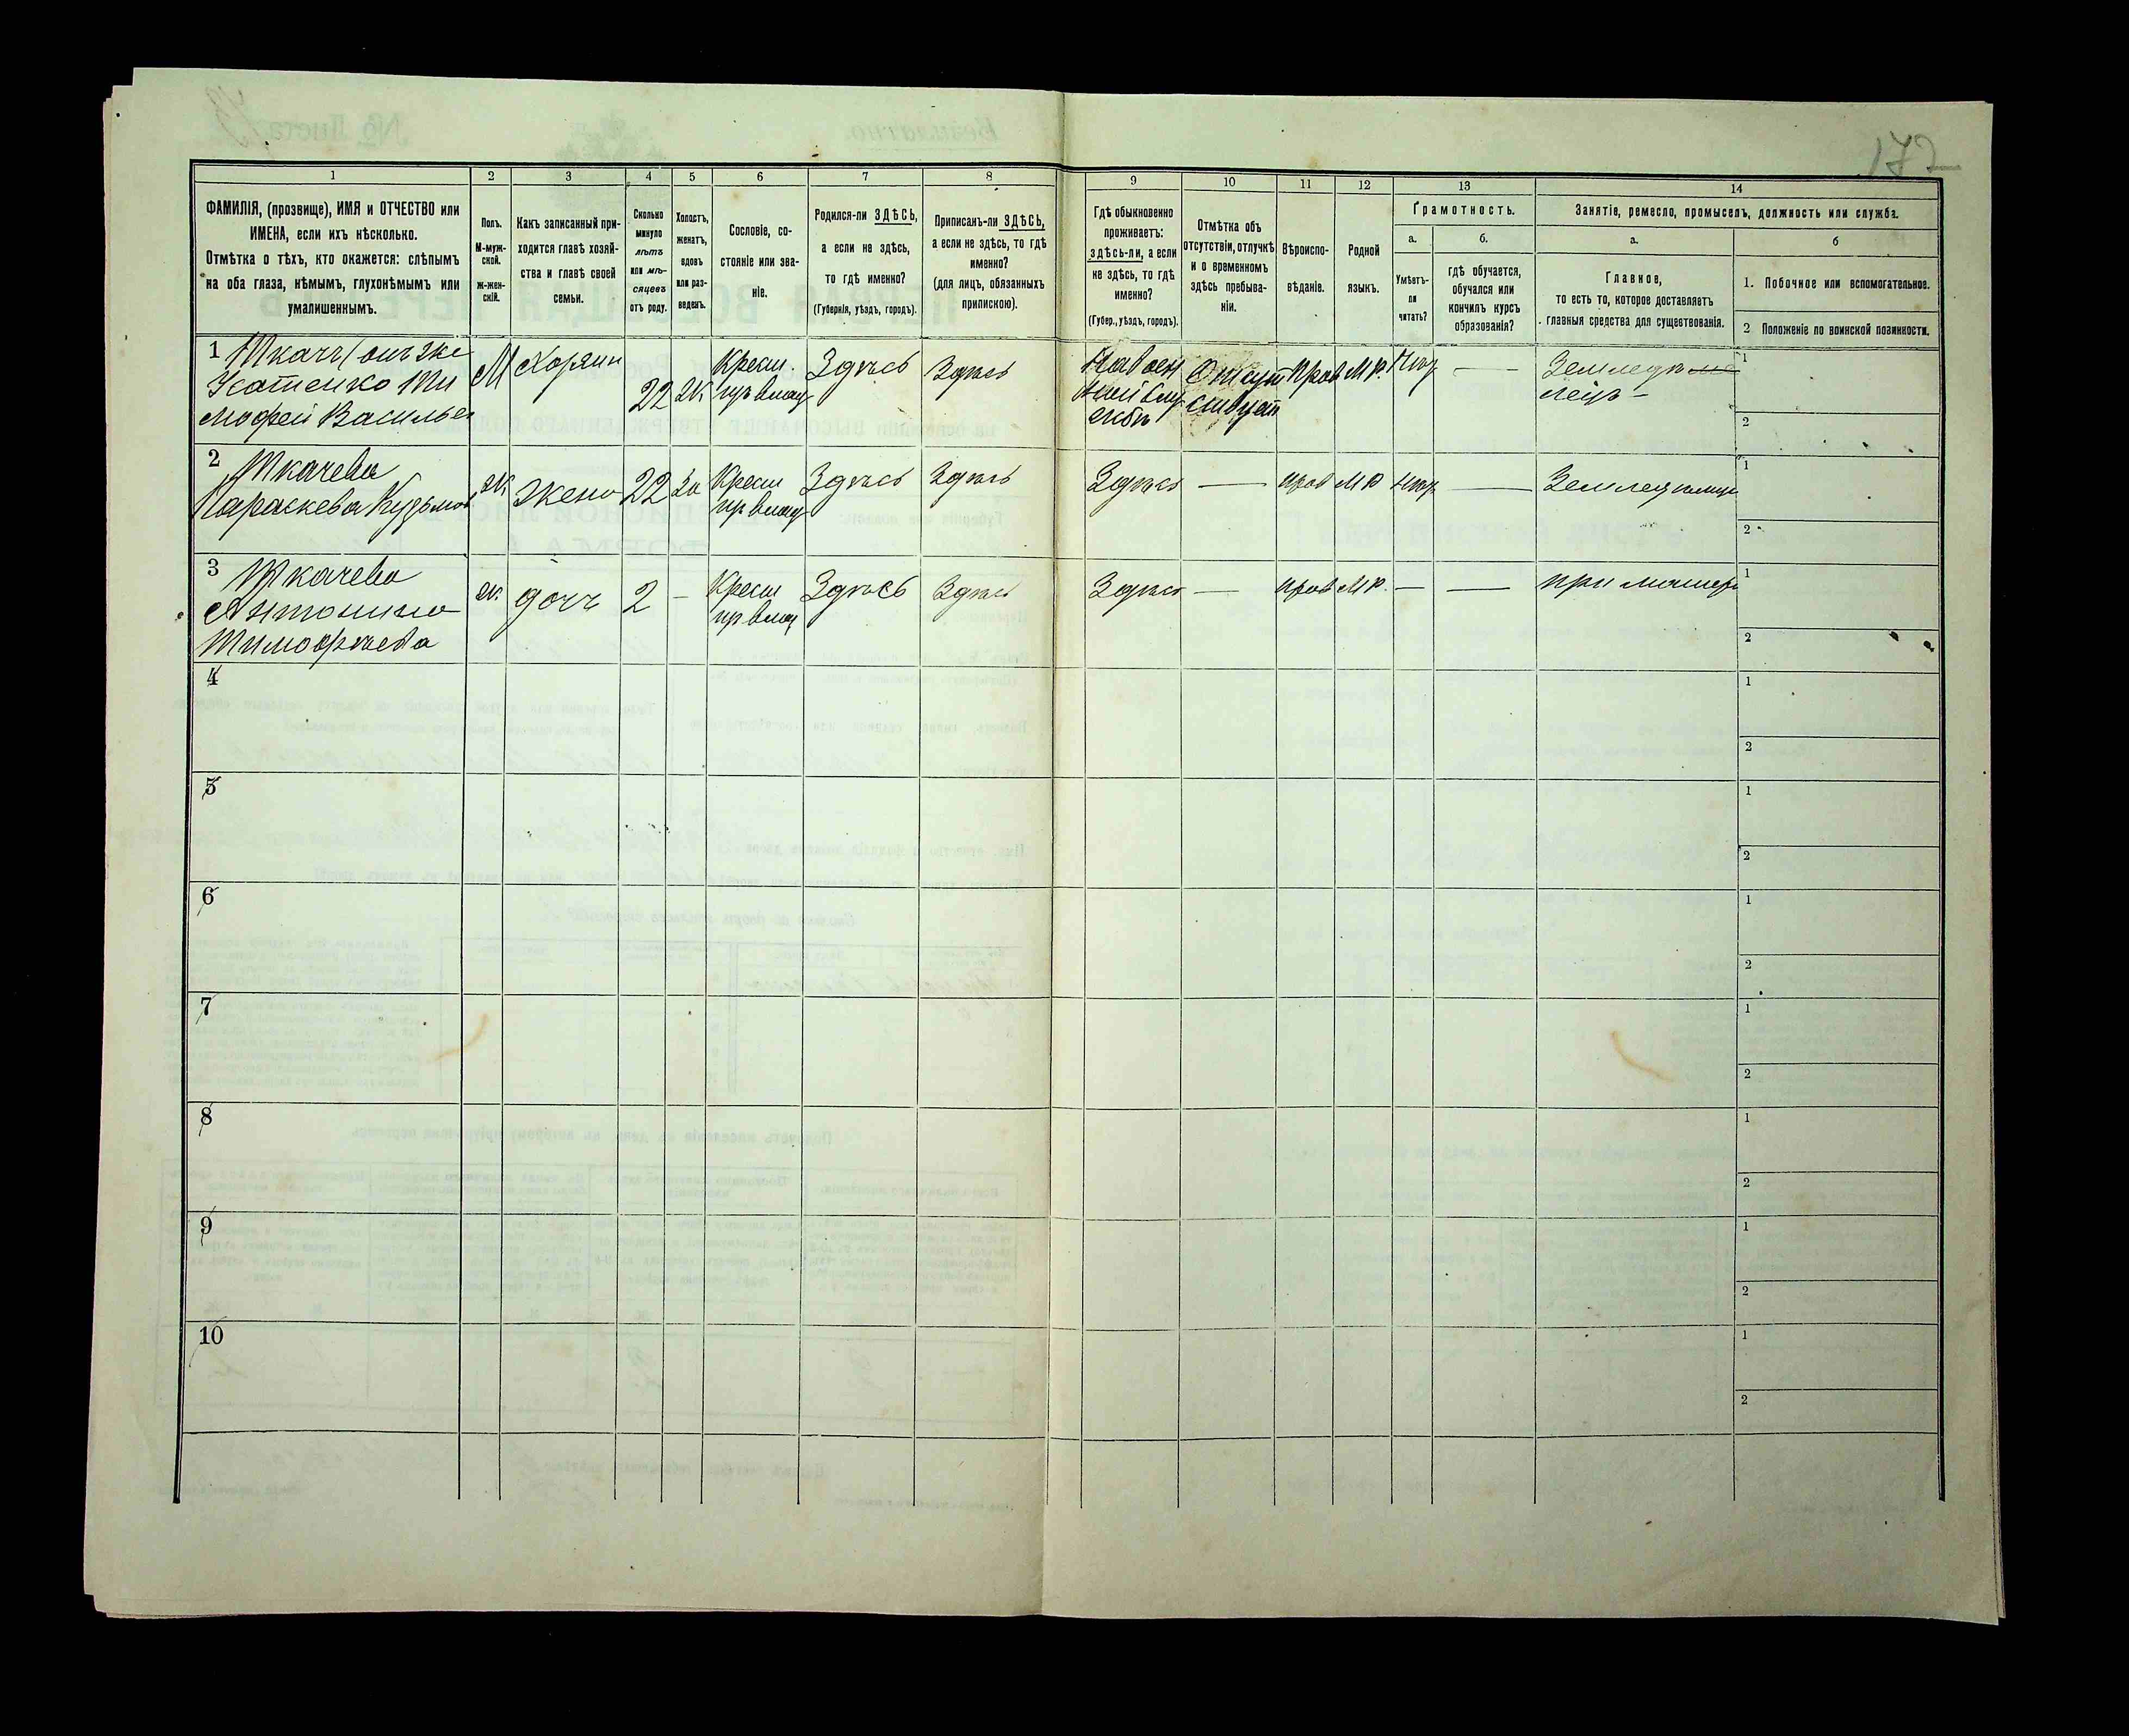 172
1
2
3
4
5
6
7
8
9
10
11
12
13
14
ФАМИЛІЯ, (прозвище), ИМЯ и ОТЧЕСТВО или
ИМЕНА, если ихъ нѣсколько.
Отмѣтка о тѣхъ, кто окажется: слѣпымъ
на оба глаза, нѣмымъ, глухонѣмымъ или
умалишеннымъ.
Полъ.
М-муж-
ской.
ж-жен-
скій.
Какъ записанный при-
ходится главѣ хозяй-
ства и главѣ своей
семьи.
Сколько
минуло
лѣтъ
или мѣ-
сяцевъ
отъ роду.
Холостъ,
женатъ,
вдовъ
или раз-
веденъ.
Сословіе, со-
стояніе или зва-
ніе.
Родился-ли ЗДѢСЬ,
а если не здѣсь,
то гдѣ именно?
(Губернія, уѣздъ, городъ).
Приписанъ-ли ЗДѢСЬ,
а если не здѣсь, то гдѣ
именно?
(для лицъ, обязанныхъ
припискою).
Гдѣ обыкновенно
проживаетъ:
здѣсь-ли, а если
не здѣсь, то гдѣ
именно?
(Губер., уѣздъ, городъ).
Отмѣтка объ
отсутствіи, отлучкѣ
и о временномъ
здѣсь пребыва-
ніи.
Вѣроиспо-
вѣданіе.
Родной
языкъ.
Грамотность.
а.
Умѣетъ-
ли
читать?
б.
гдѣ обучается,
обучался или
кончилъ курсъ
образованія?
Занятіе, ремесло, промыселъ, должность или служба.
а.
Главное,
то есть то, которое доставляетъ
главныя средства для существованія.
б
1. Побочное или вспомогательное.
2 Положеніе по воинской повинности.
1 Ткачъ (онъ же
Усатенко Ти
мофей Васильев
М
Хозяин
22
Ж
Крест.
изъ влад
Здѣсь
Здѣсь
На воен
ной слу
жбѣ
Отсут
ствует
Прав
М.Р.
Нѣт
—
Земледѣ
лецъ -
1
2
2 Ткачева
Параскева Кузьмов
ж
жена
22
за
Крест
изъ влад
Здѣсь
Здѣсь
Здѣсь
—
прав
М Р
нѣт
—
Земледѣлица
1
2
3 Ткачева
Антонина
Тимофѣева
ж.
дочь
2
—
Крест
изъ влад
Здѣсь
Здѣсь
Здѣсь
—
прав
М Р.
—
—
при матери
1
2
4
1
2
5
1
2
6
1
2
7
1
2
8
1
2
9
1
2
10
1
2